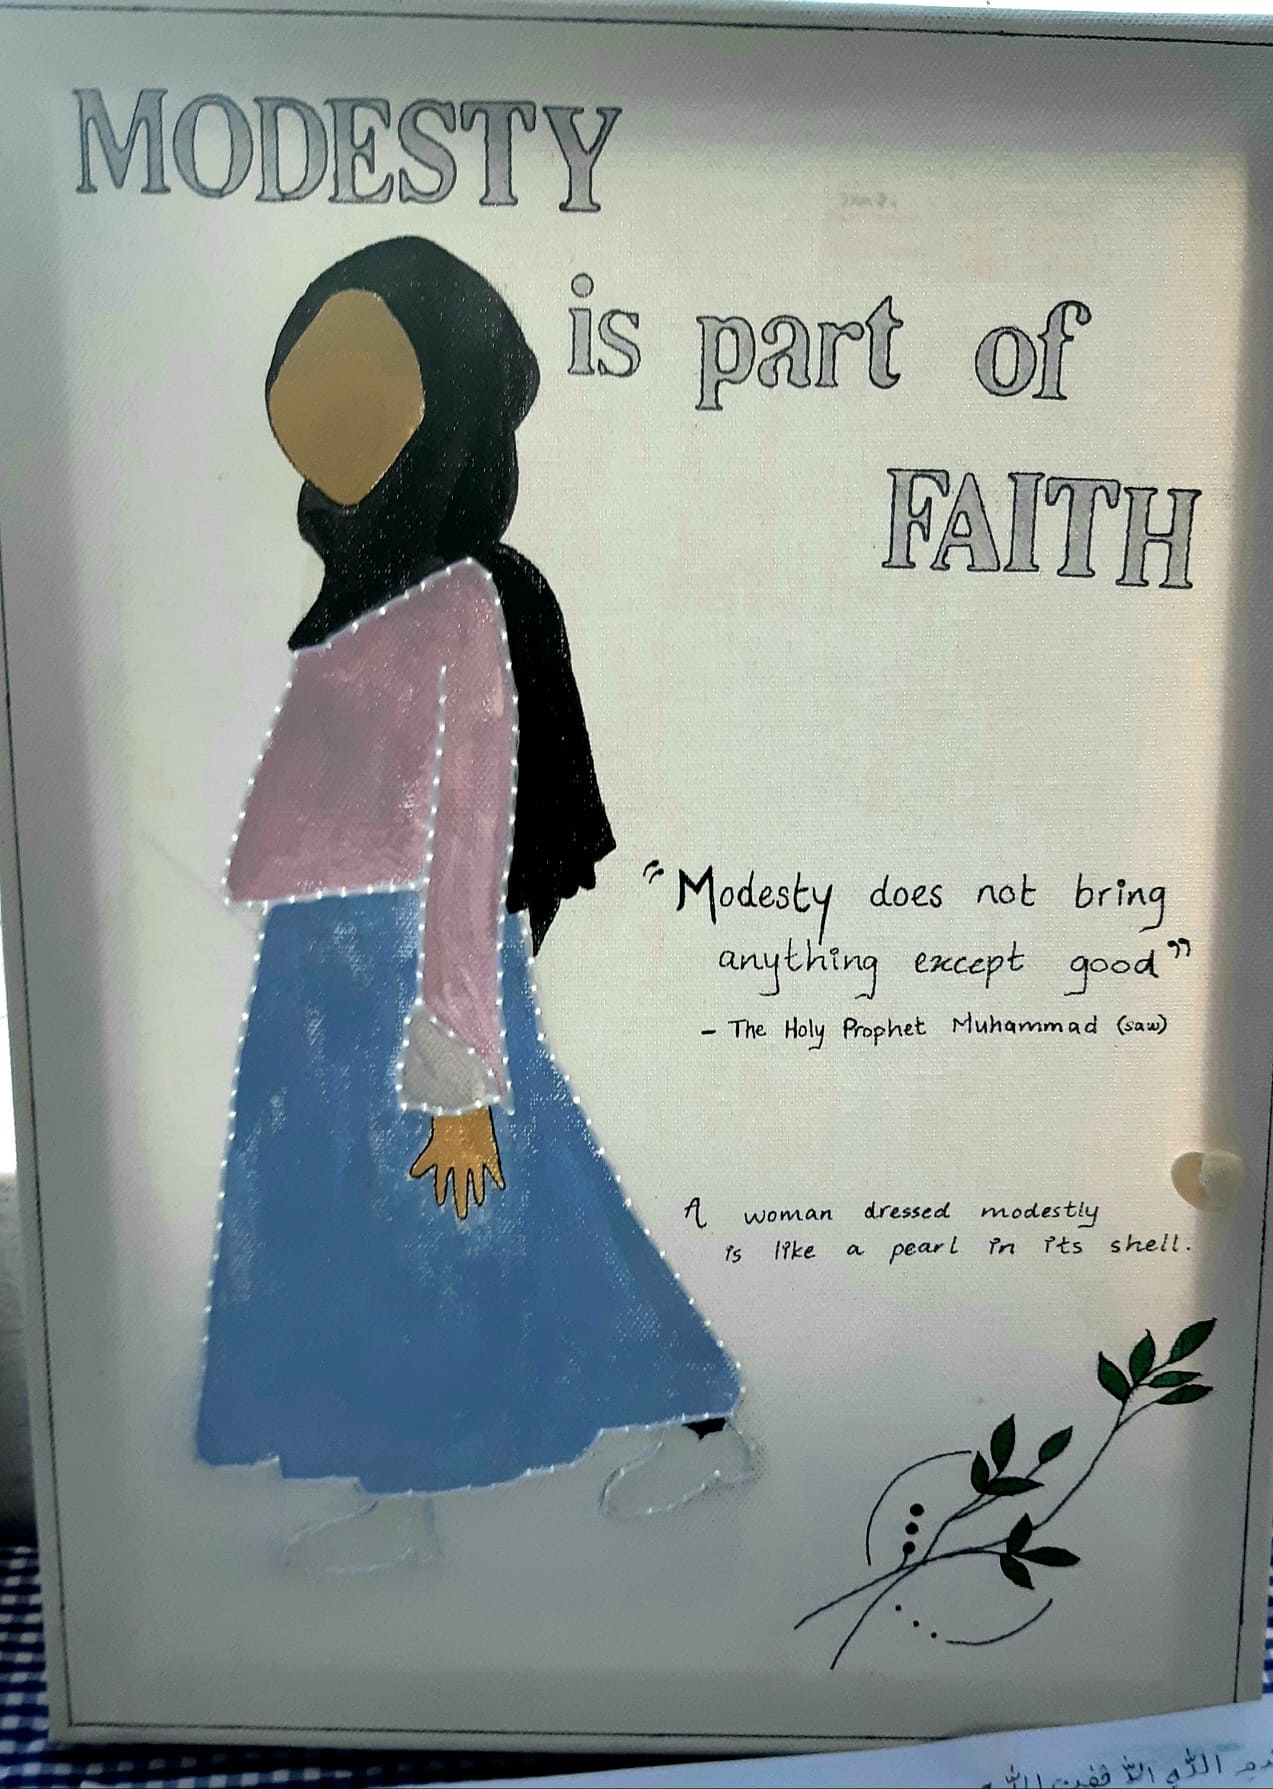 MODESTY
is part of
FAITH
"Modesty does not bring
anything except good"
- The Holy Prophet Muhammad (saw)
A woman dressed modestly
is like a pearl in its shell.